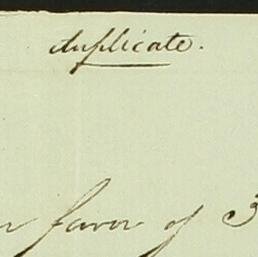 duplicate.
favor of 3